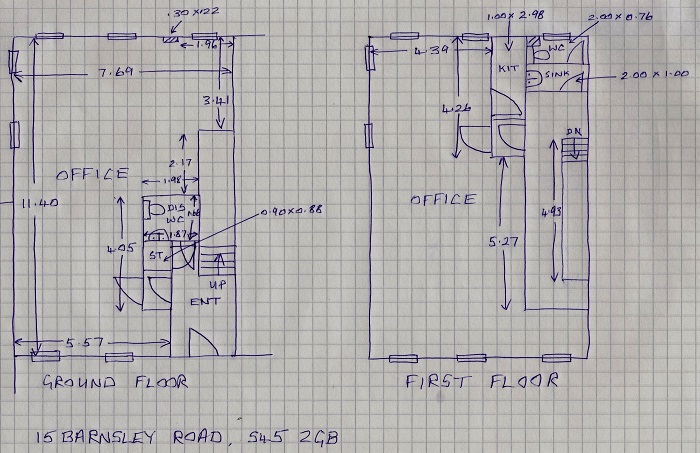 .30 x 122
1.96
7.69
3.41
2.17
1.98
OFFICE
DIS
WC
1.87
0.90 x 0.88
11.40
4.05
ST
UP
ENT
5.57
GROUND FLOOR
1.00 x 2.98
2.00 x 0.76
4.39
WC
KIT
SINK
2.00 x 1.00
4.26
DN
OFFICE
4.93
5.27
FIRST FLOOR
15 BARNSLEY ROAD, S45 2GB